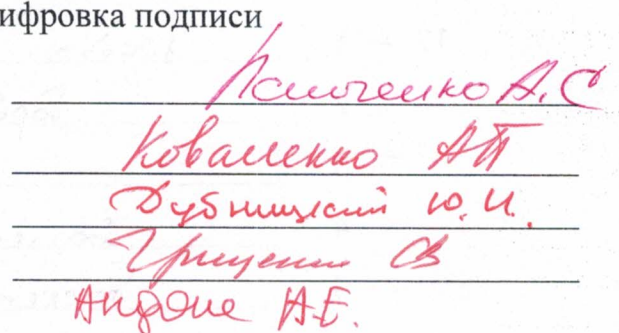 ифровка подписи
А.С
Коваленко АП
Дубницкий Ю.И.
Грищенко СВ
Андоне А.Е.